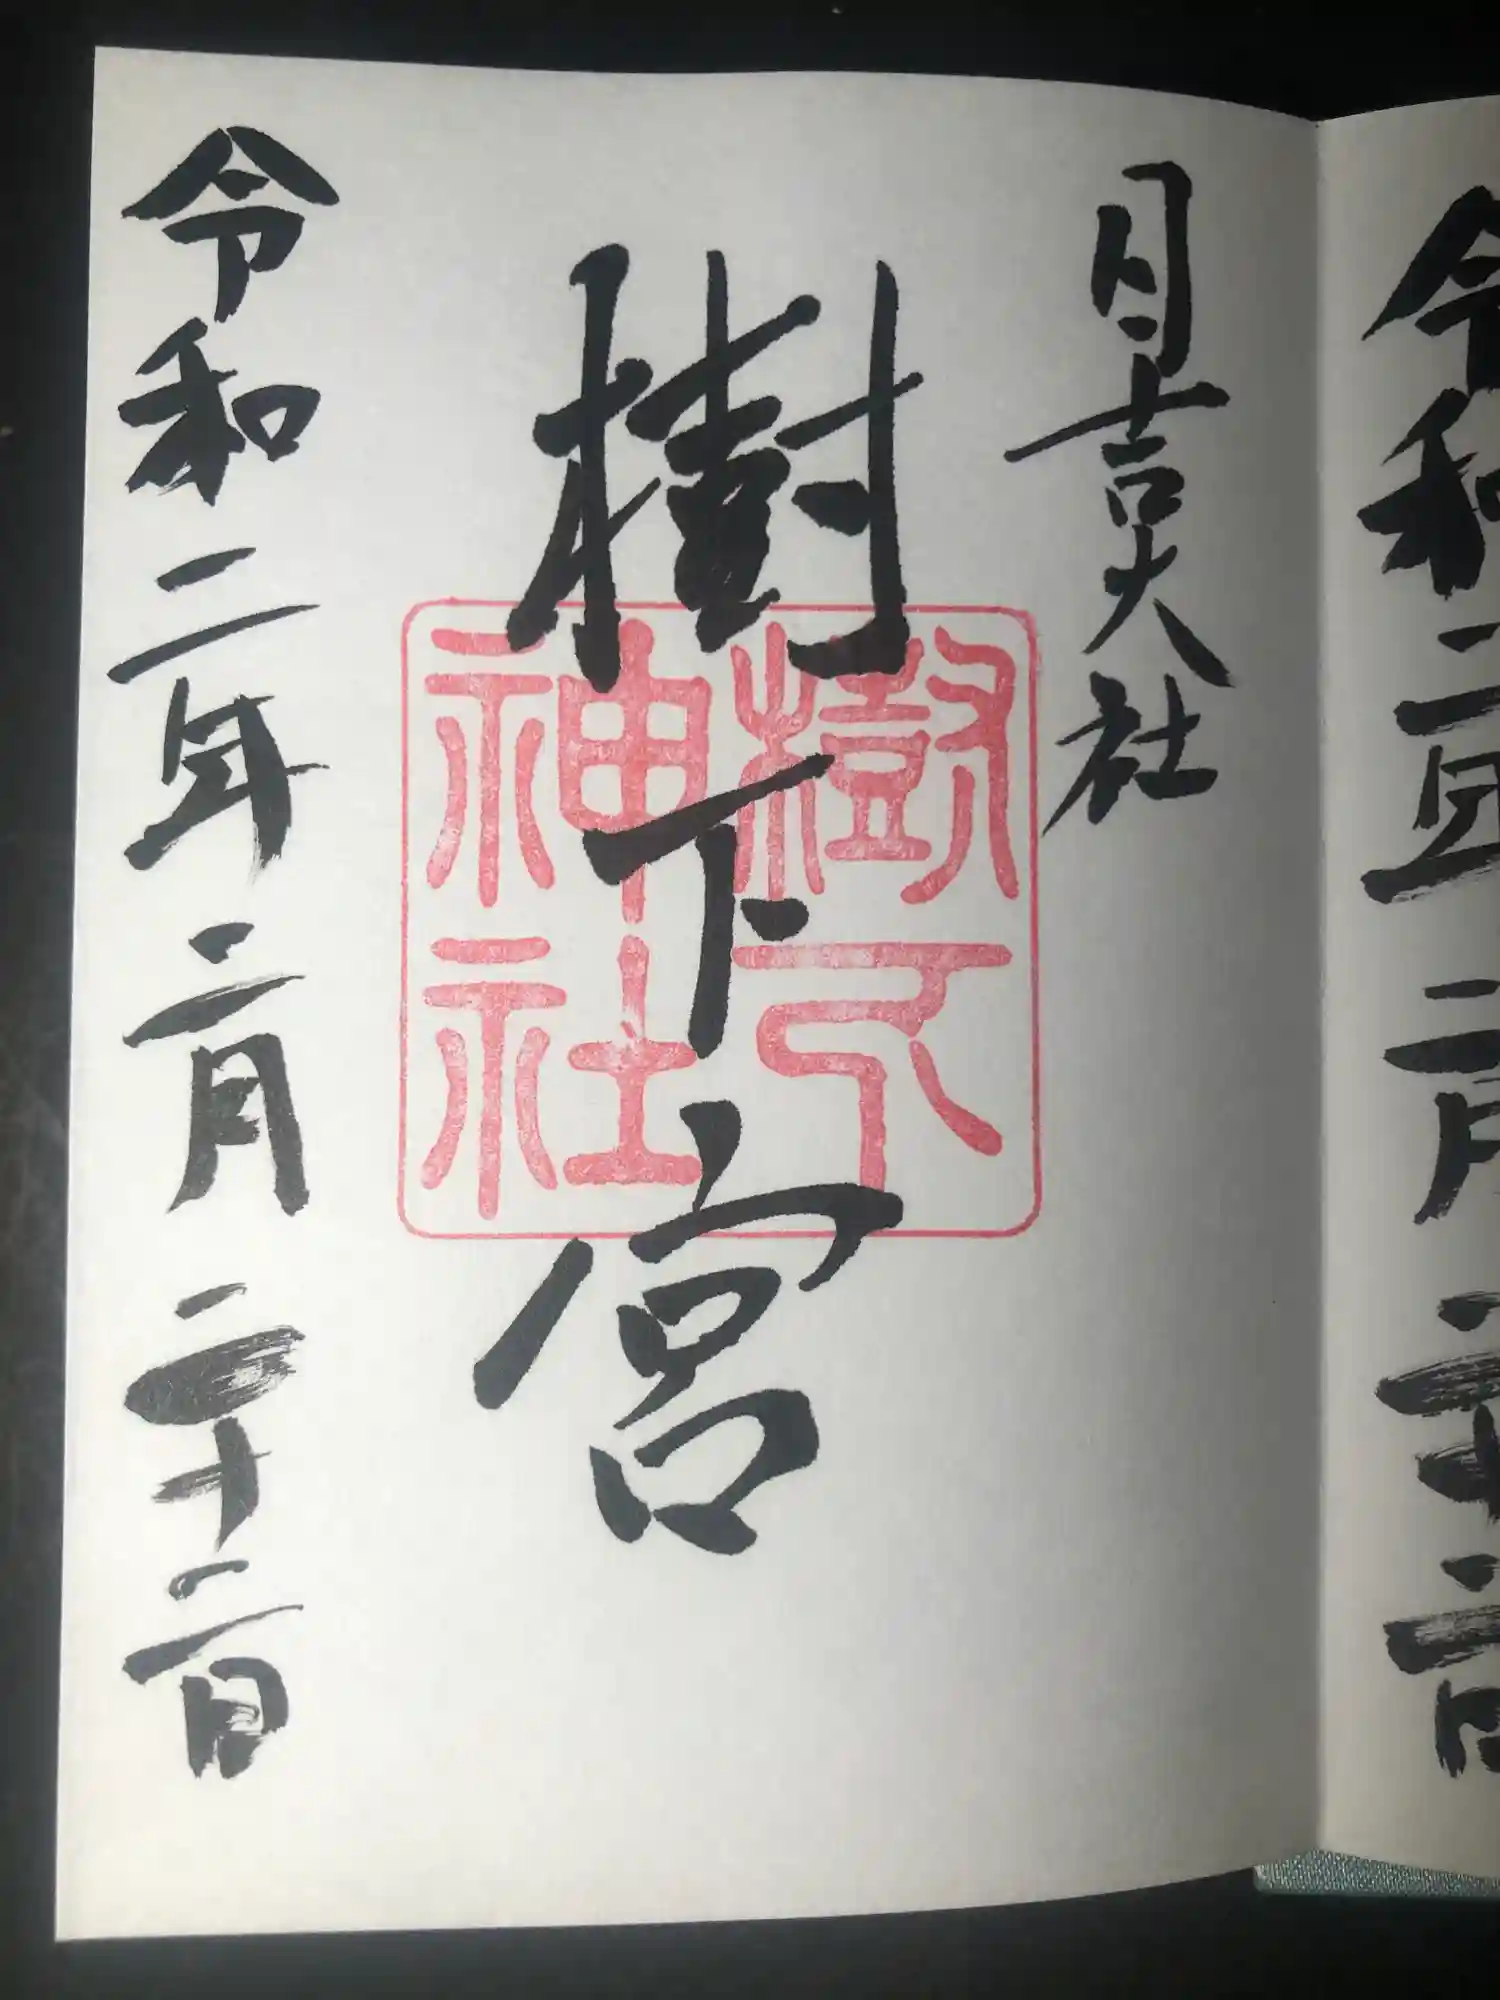 令和二年二月二十二日
日吉大社
樹下宮
樹下
神社
令和二年二月二十二日